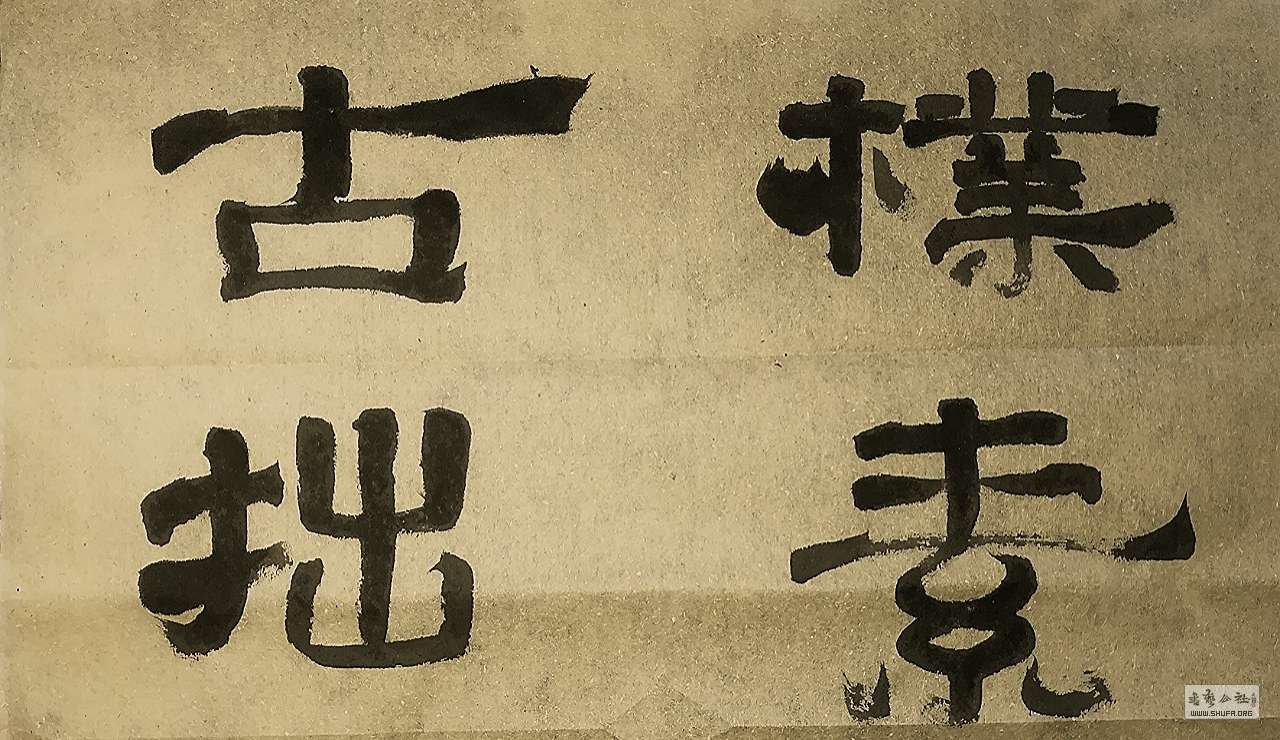 樸素
古拙
書藝公社
WWW.SHUFA.ORG